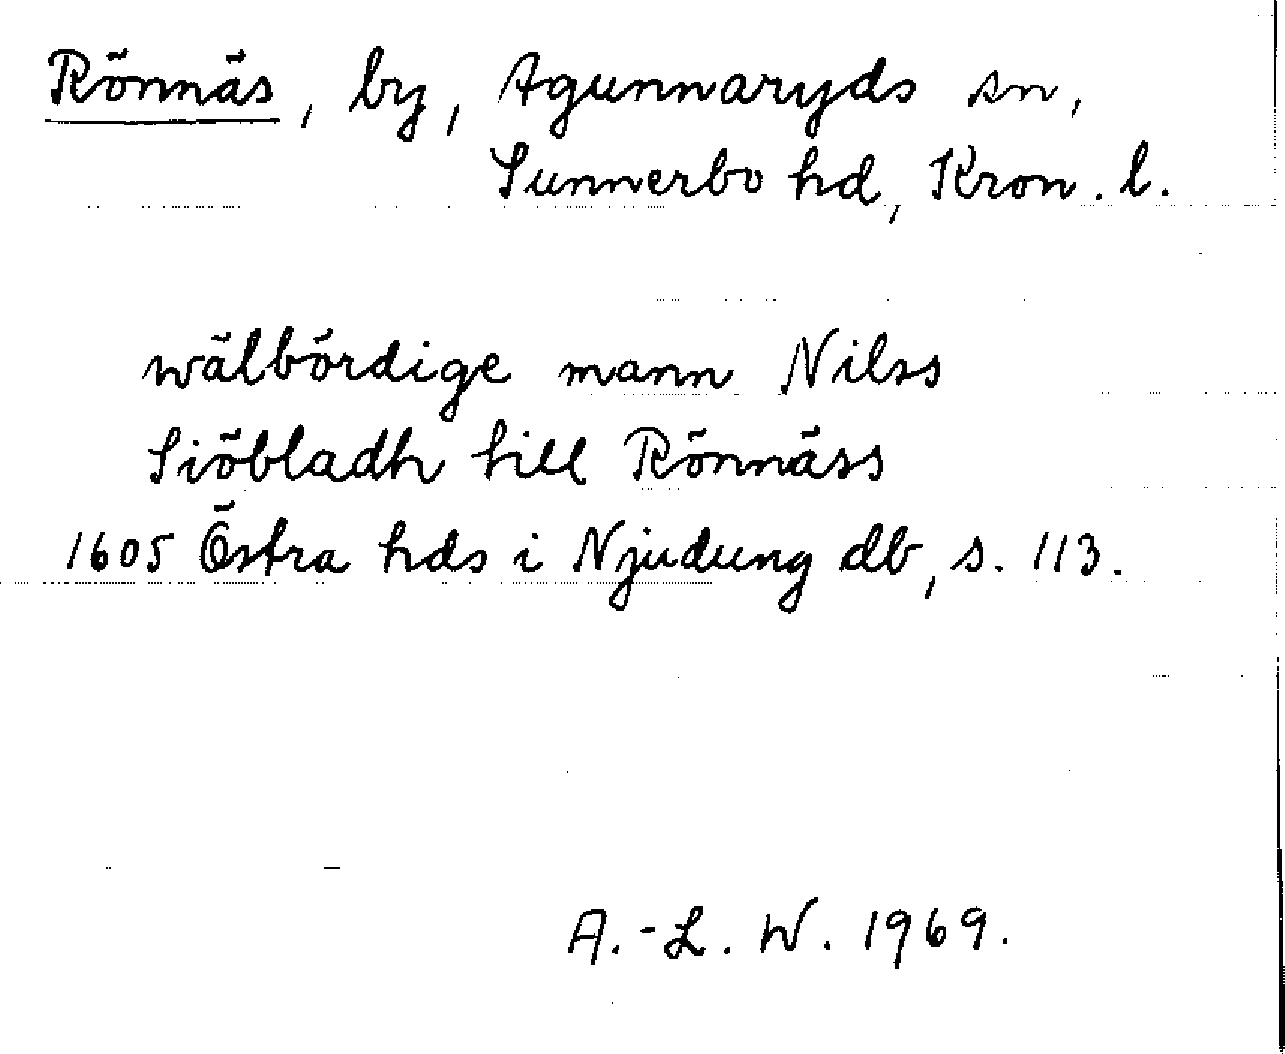 Rönnäs, by, Agunnaryds sn,
Sunnerbo hd, Kron. l.
wälbördige mann Nilss
Siöbladh till Rönnäss
1605 Östra hds i Njudung db, s. 113.
A.-L. W. 1969.